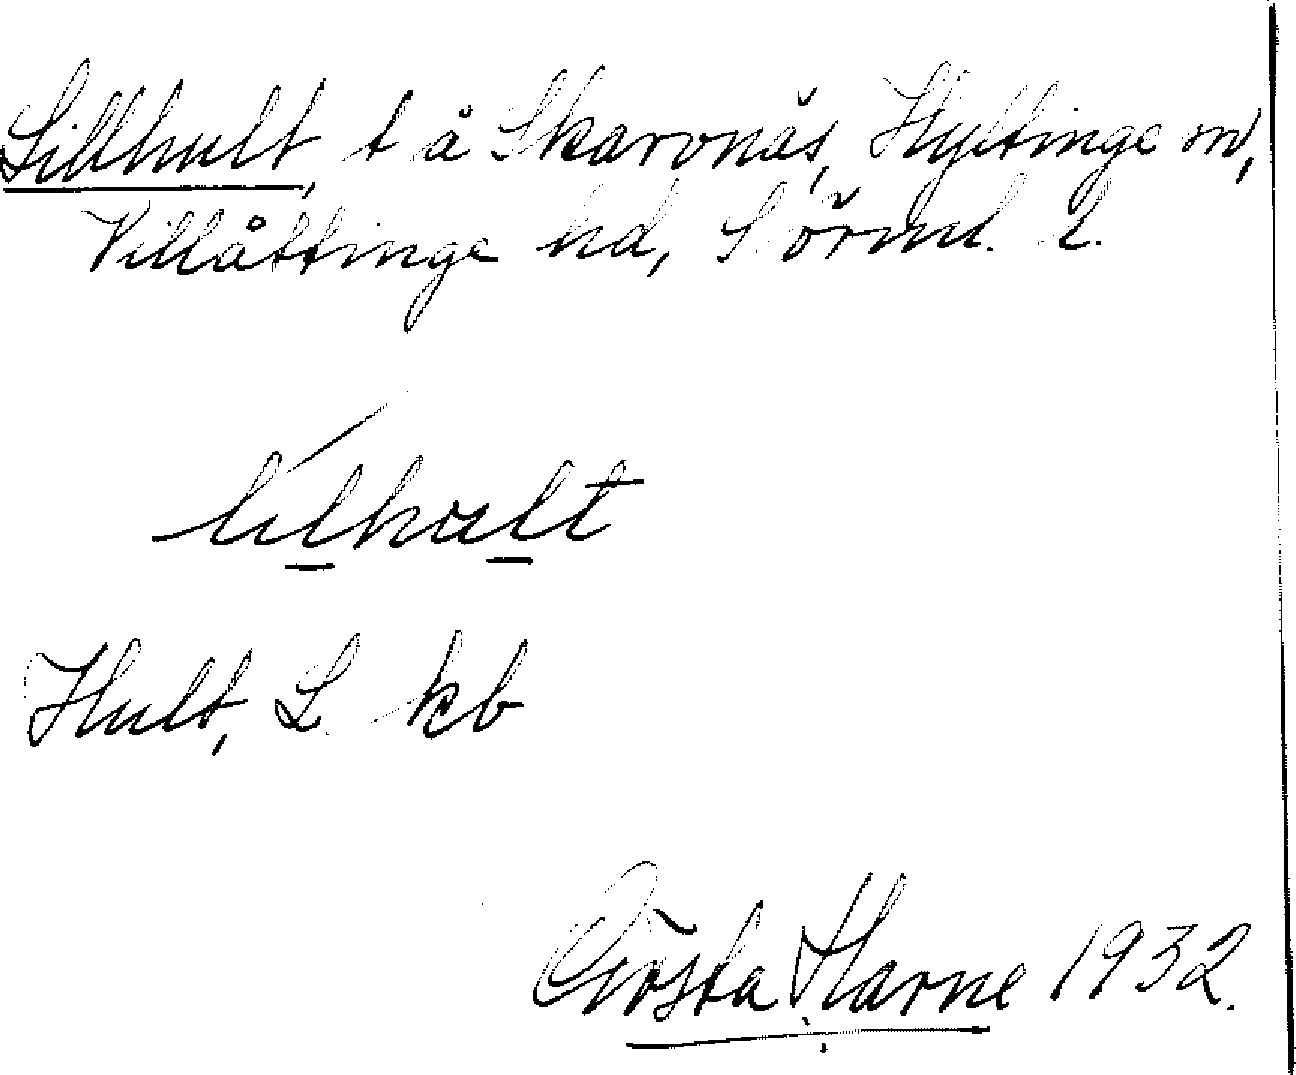 Lillhult, t å Skarvnäs, Hyltinge sn,
Villåttinge hd, Sörml. l.
lilhult
Hult, L. kb
Gösta Harne 1932.